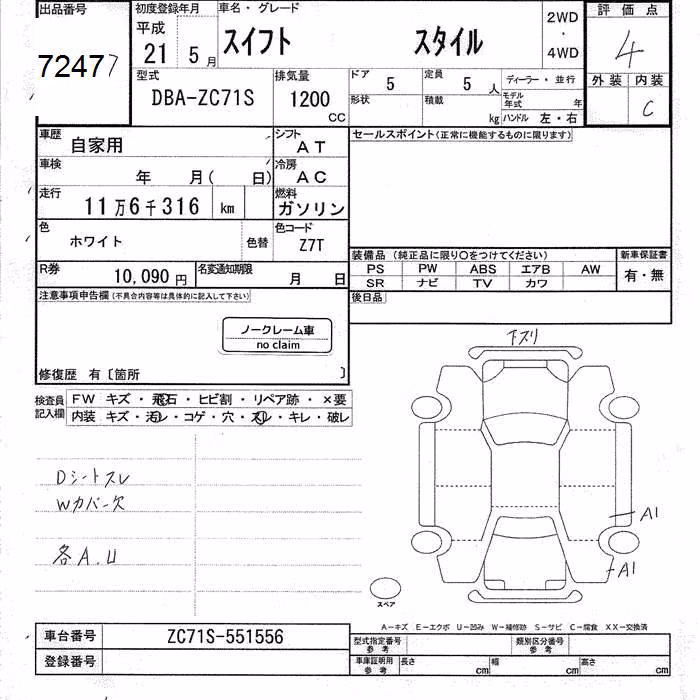 出品番号 初度登録年月 車名・グレード 評価点
72477 平成 21 5月 スイフト スタイル 2WD・4WD 4
外装 内装
C
型式 排気量 ドア 定員 ディーラー・並行
DBA-ZC71S 1200 CC 5 5 人 モデル年式 年
形状 積載 kg ハンドル 左・右
車歴 自家用 シフト AT セールスポイント(正常に機能するものに限ります)
車検 年 月( 日) 冷房 AC
走行 11万6千316 km 燃料 ガソリン
色 ホワイト 色替 色コード Z7T
装備品 (純正品に限り○をつけてください) 新車保証書
PS PW ABS エアB AW 有・無
SR ナビ TV カワ
R券 10,090円 名変通知期限 月 日
注意事項申告欄(不具合内容等は具体的に記入して下さい) 後日品
ノークレーム車
no claim
下スリ
修復歴 有〔箇所 〕
検査員記入欄 FW キズ・飛石・ヒビ割・リペア跡・×要
内装 キズ・汚レ・コゲ・穴・スレ・キレ・破レ
Dシートスレ
Wカバー欠
A1
各A.U
A1
スペア
A-キズ E-エクボ U-凹み W-補修跡 S-サビ C-腐食 XX-交換済
車台番号 ZC71S-551556 型式指定番号 参考 類別区分番号 参考
登録番号 車庫証明用 参考 長さ cm 幅 cm 高さ cm